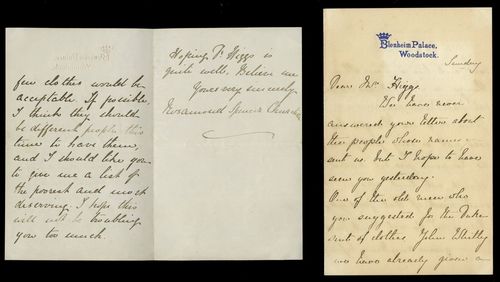 Blenheim Palace,
Woodstock.
Sunday
Dear Mr. Higgs
We have never
answered your letter about
the people whose names
sent us. but I hope to have
seen you yesterday.
One of the old men who
you suggested for the Duke
suit of clothes John
we have already given a
few clothes would be
acceptable. If possible,
I think they should
be different people this
time to have them,
and I should like you
to give me a list of
the poorest and most
deserving. I hope this
will not be troubling
you too much.
Hoping Higgs is
quite well, Believe me
Yours very sincerely
Rosamond Spencer Churchill